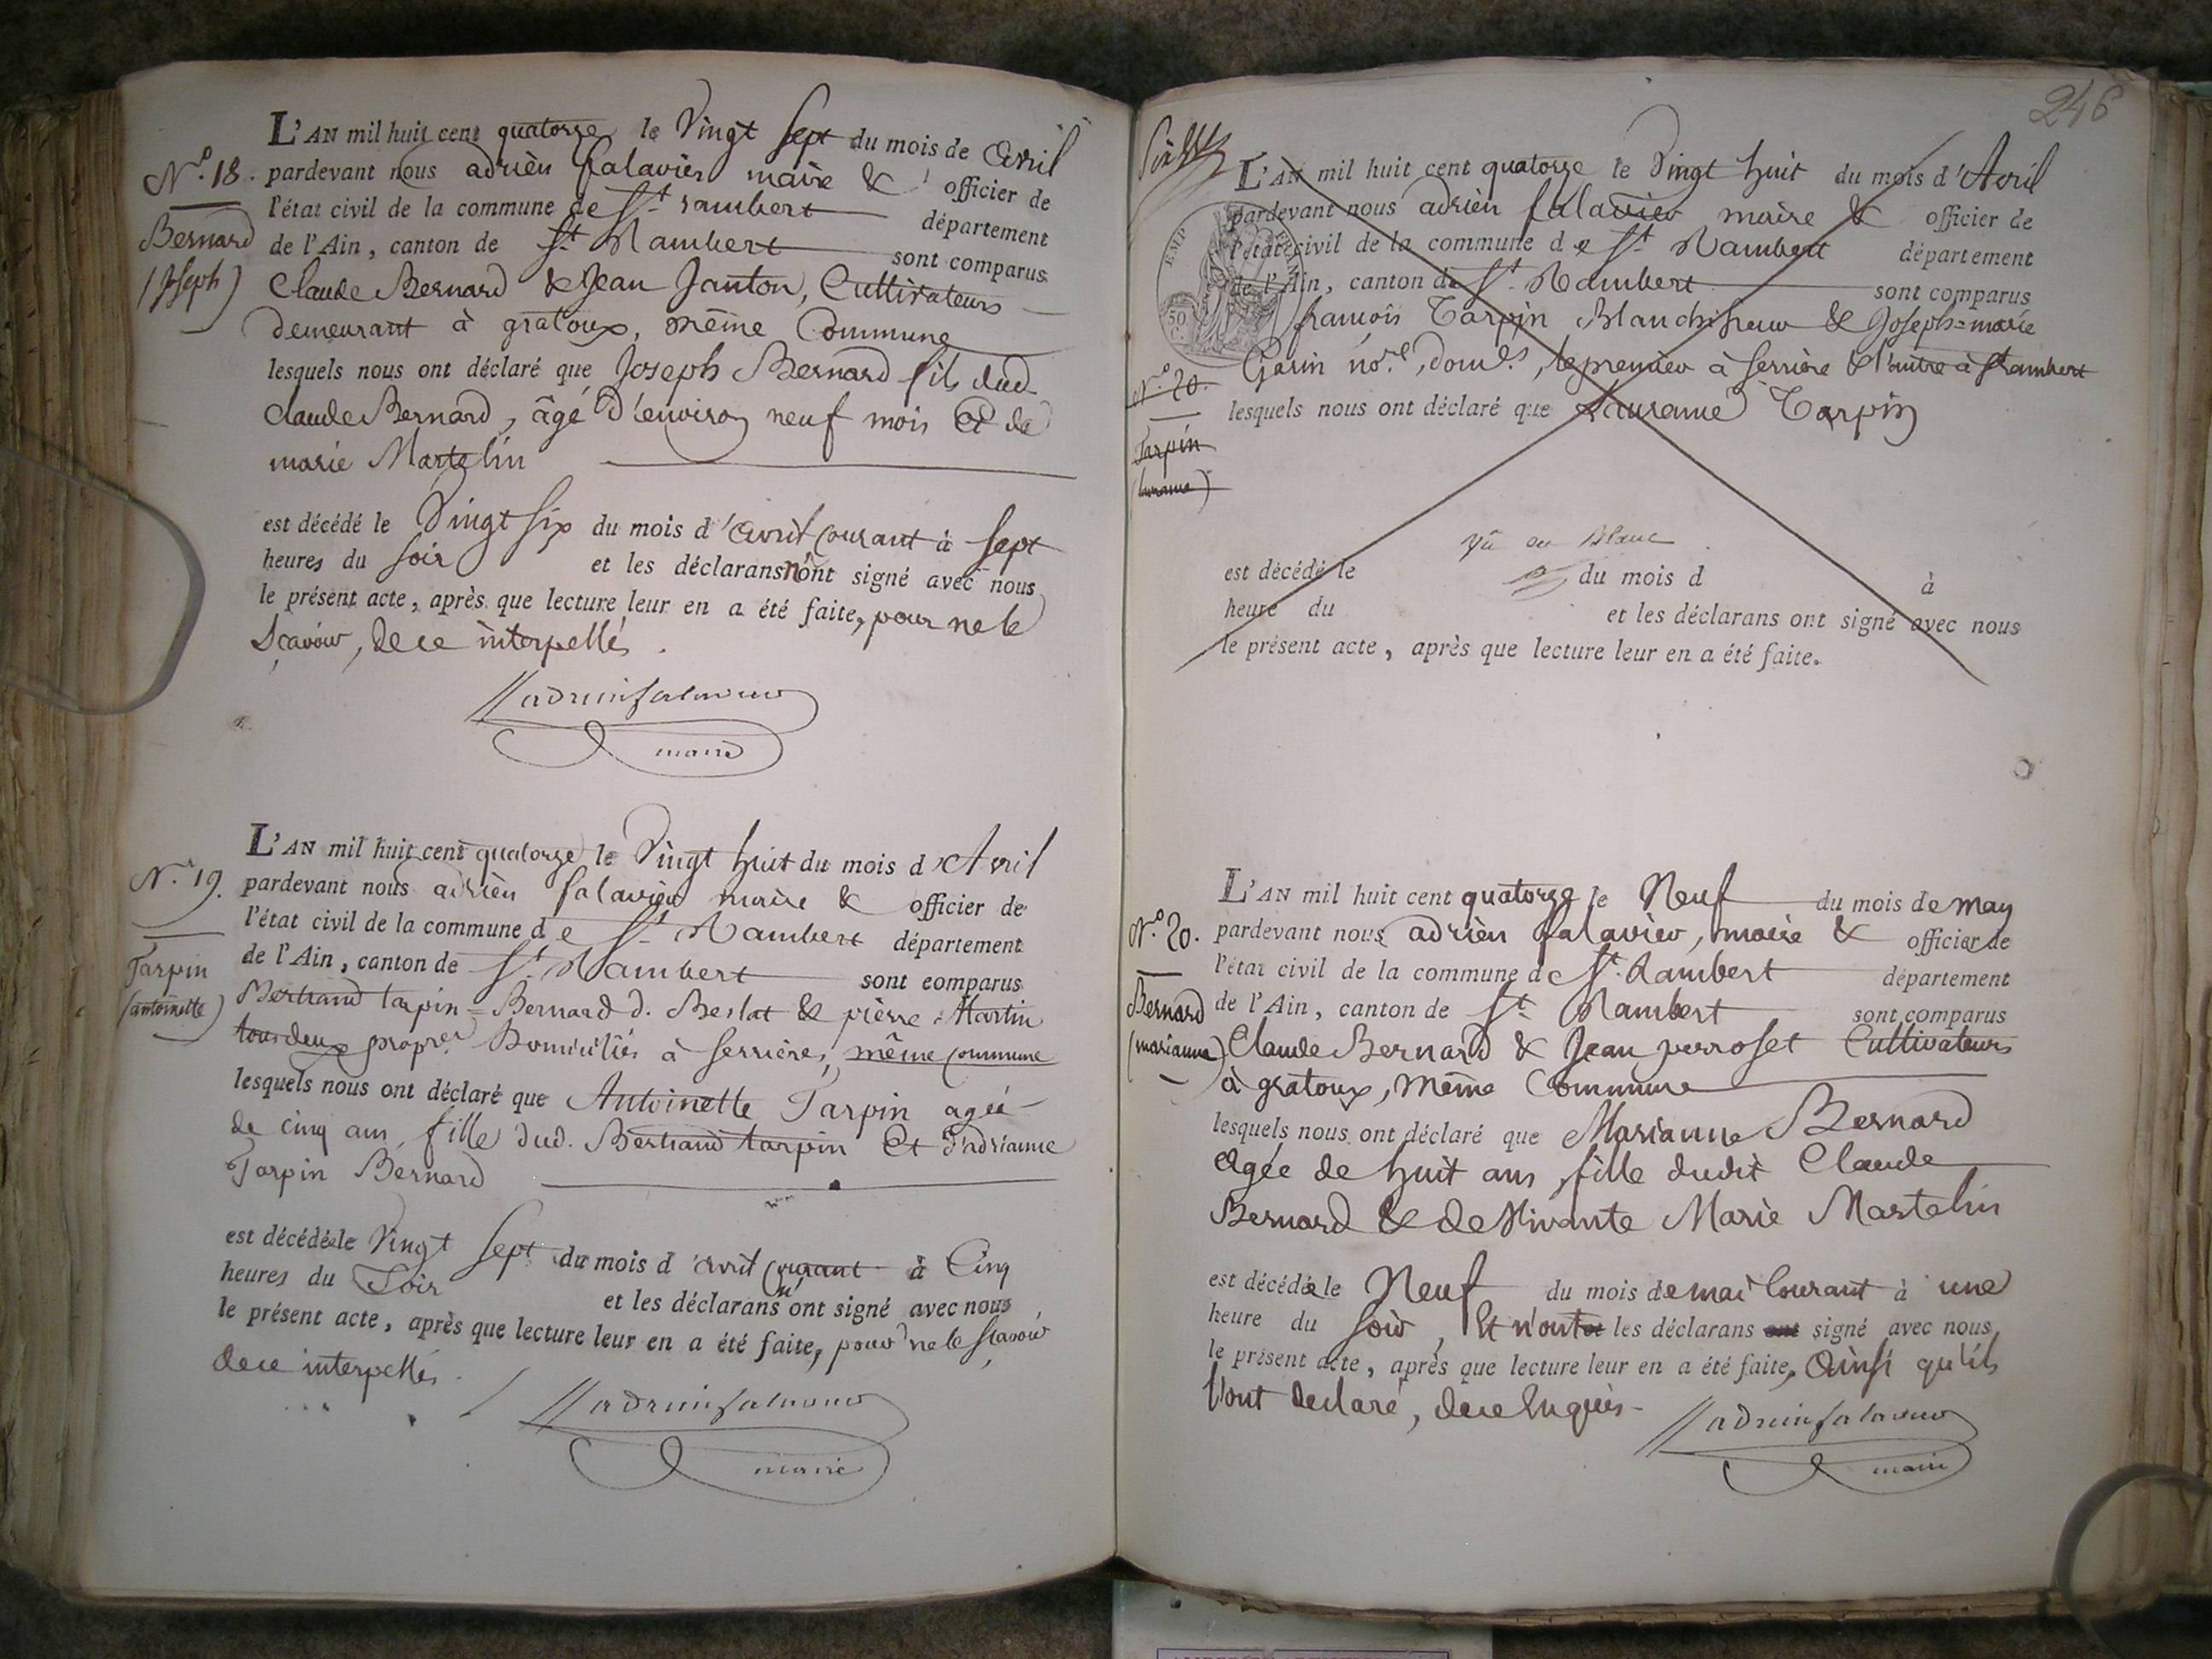 L'AN mil huit cent quatorze le Vingt sept du mois de avril
N.º 18. pardevant nous adrièn falavier maire & officier de
l'état civil de la commune de St. rambert département
Bernard de l'Ain, canton de St. Rambert sont comparus
(Joseph) Claude Bernard & Jean Janton, Cultivateurs
demeurant à gratoux, même Commune
lesquels nous ont déclaré que Joseph Bernard fils dud.
Claude Bernard, âgé d'environ neuf mois et de
marie Martelin
est décédé le Vingt six du mois d'avril Courant à sept
heures du soir et les déclarans n'ont signé avec nous
le présent acte, après que lecture leur en a été faite, pour ne le
sçavoir, de ce interpellés.
adrien falavier
maire
L'AN mil huit cent quatorze le Vingt huit du mois d'Avril
N.º 19. pardevant nous adrièn falavier maire & officier de
l'état civil de la commune de St. Rambert département
de l'Ain, canton de St. Rambert sont comparus
Tarpin
(antoinette) Bertrand tarpin = Bernard d. Beslat & pièrre Martin
tous deux propres. Domiciliés à serrières, même Commune
lesquels nous ont déclaré que Antoinette Tarpin agée
de cinq ans, fille dud. Bertrand tarpin Et d'adrianne
Tarpin Bernard
est décédée le Vingt sept du mois d'avril Courant à Cinq
heures du Soir et les déclarans n'ont signé avec nous
le présent acte, après que lecture leur en a été faite, pour ne le sçavoir
de ce interpellés.
adrien falavier
maire
246
L'AN mil huit cent quatorze le Vingt huit du mois d'Avril
pardevant nous adrièn falavier maire & officier de
l'état civil de la commune de St. Rambert département
de l'Ain, canton de St. Rambert sont comparus
françois Tarpin Blanchisseur & Joseph=marie
Garin no.re, dom.és, le premier à serrière & l'autre à St rambert
N.º 20.
lesquels nous ont déclaré que Tarpin
Tarpin
vû en Blanc
est décédé le du mois d à
heure du et les déclarans ont signé avec nous
le présent acte, après que lecture leur en a été faite.
L'AN mil huit cent quatorze le Neuf du mois de may
N.º 20. pardevant nous adrièn falavier, maire & officier de
l'état civil de la commune de St. Rambert département
Bernard de l'Ain, canton de St. Rambert sont comparus
(marianne) Claude Bernard & Jean perroset Cultivateurs
à gratoux, même Commune
lesquels nous ont déclaré que Marianne Bernard
agée de huit ans, fille dudit Claude
Bernard & de vivante Marie Martelin
est décédée le Neuf du mois de mai Courant à une
heure du soir, Et n'ont les déclarans ont signé avec nous
le présent acte, après que lecture leur en a été faite, Ainsi qu'ils
l'ont declaré, de ce Enquis.
adrien falavier
maire